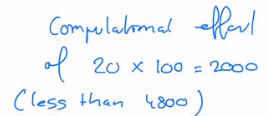 Computational effort
of 20 × 100 = 2000
(less than 4800)